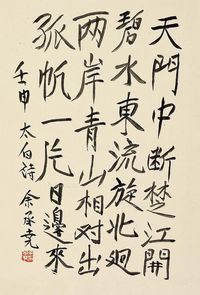 天門中断楚江開
碧水東流旋北廻
兩岸青山相对出
孤帆一片日邊來
壬申 太白詩 余承堯